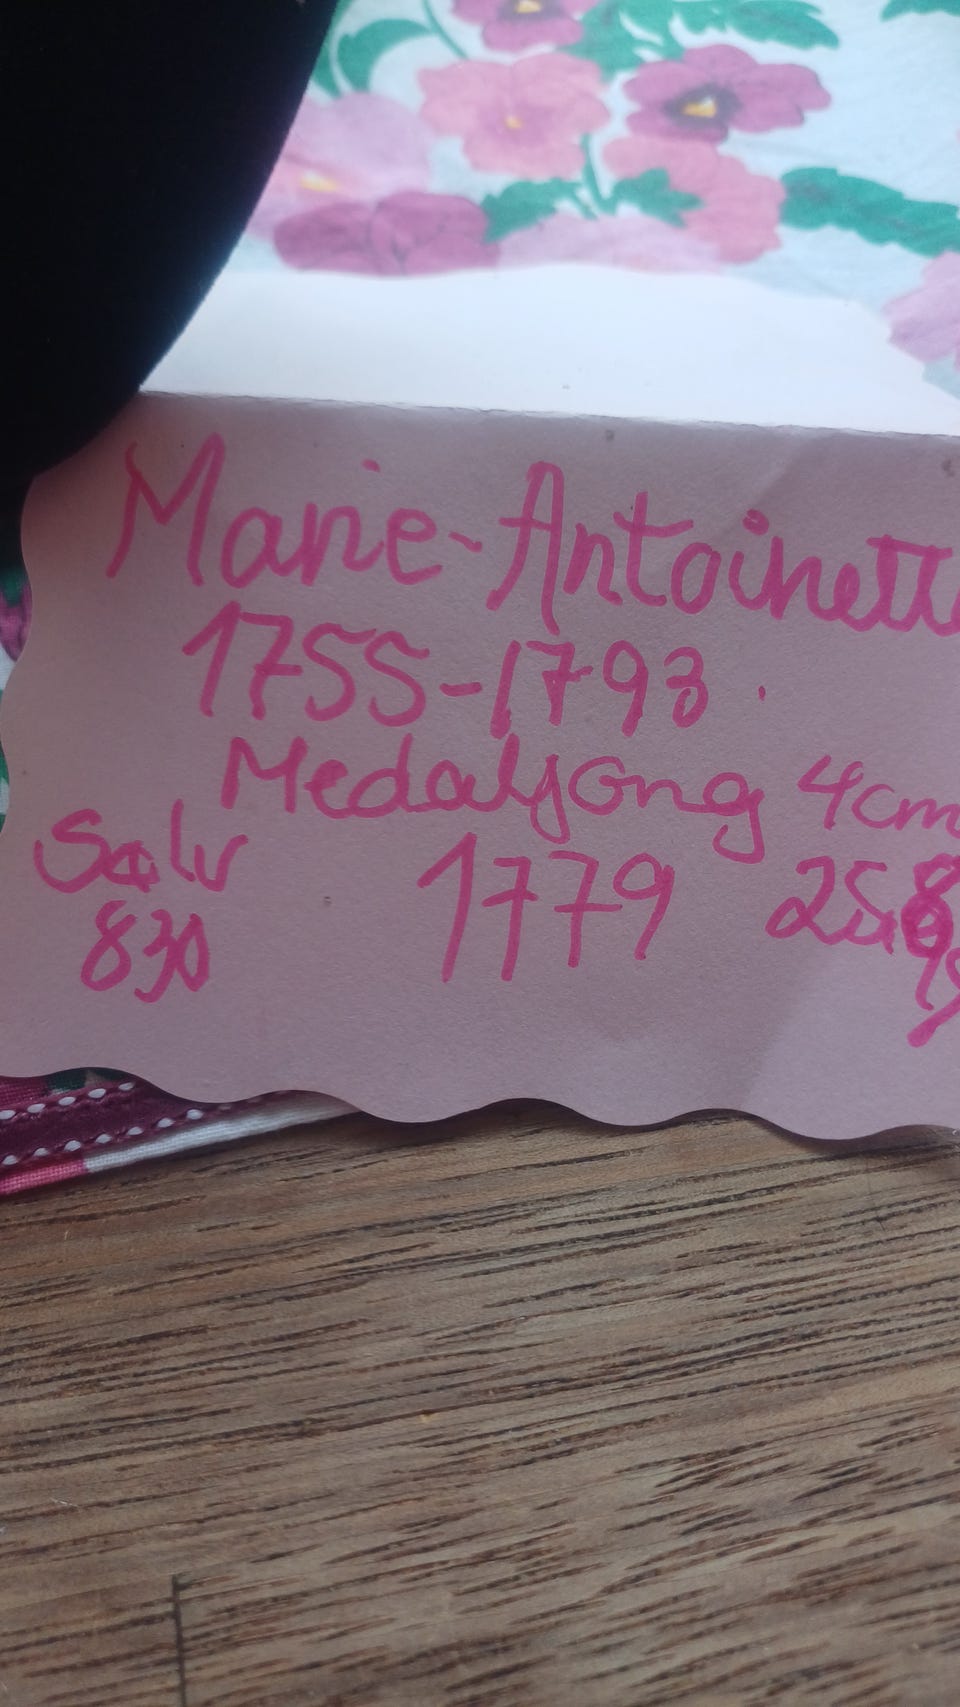 Marie-Antoinette
1755-1793.
Medaljong 4cm
Sølv 1779
830